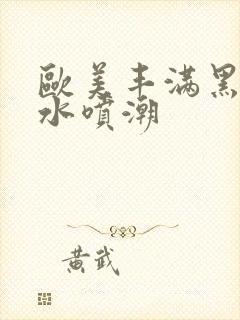 歐美丰滿黑
水噴潮
黃武